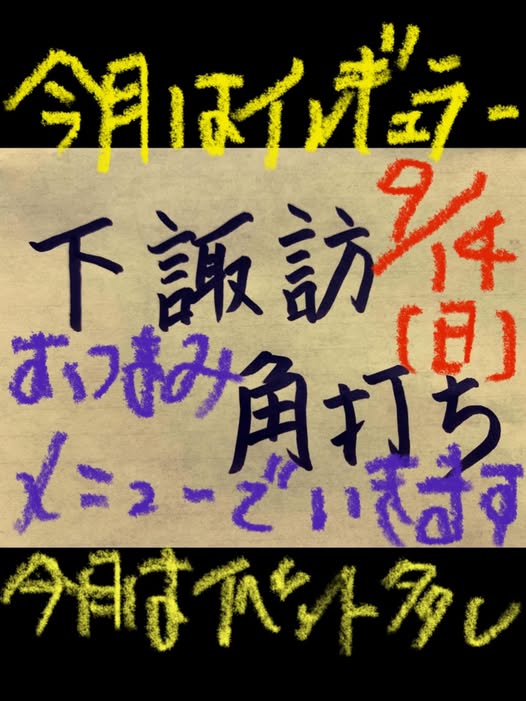 今月はイレギュラー
9/14
[日]
下諏訪
角打ち
おつまみ
メニューでいきます
今月はイベント多し